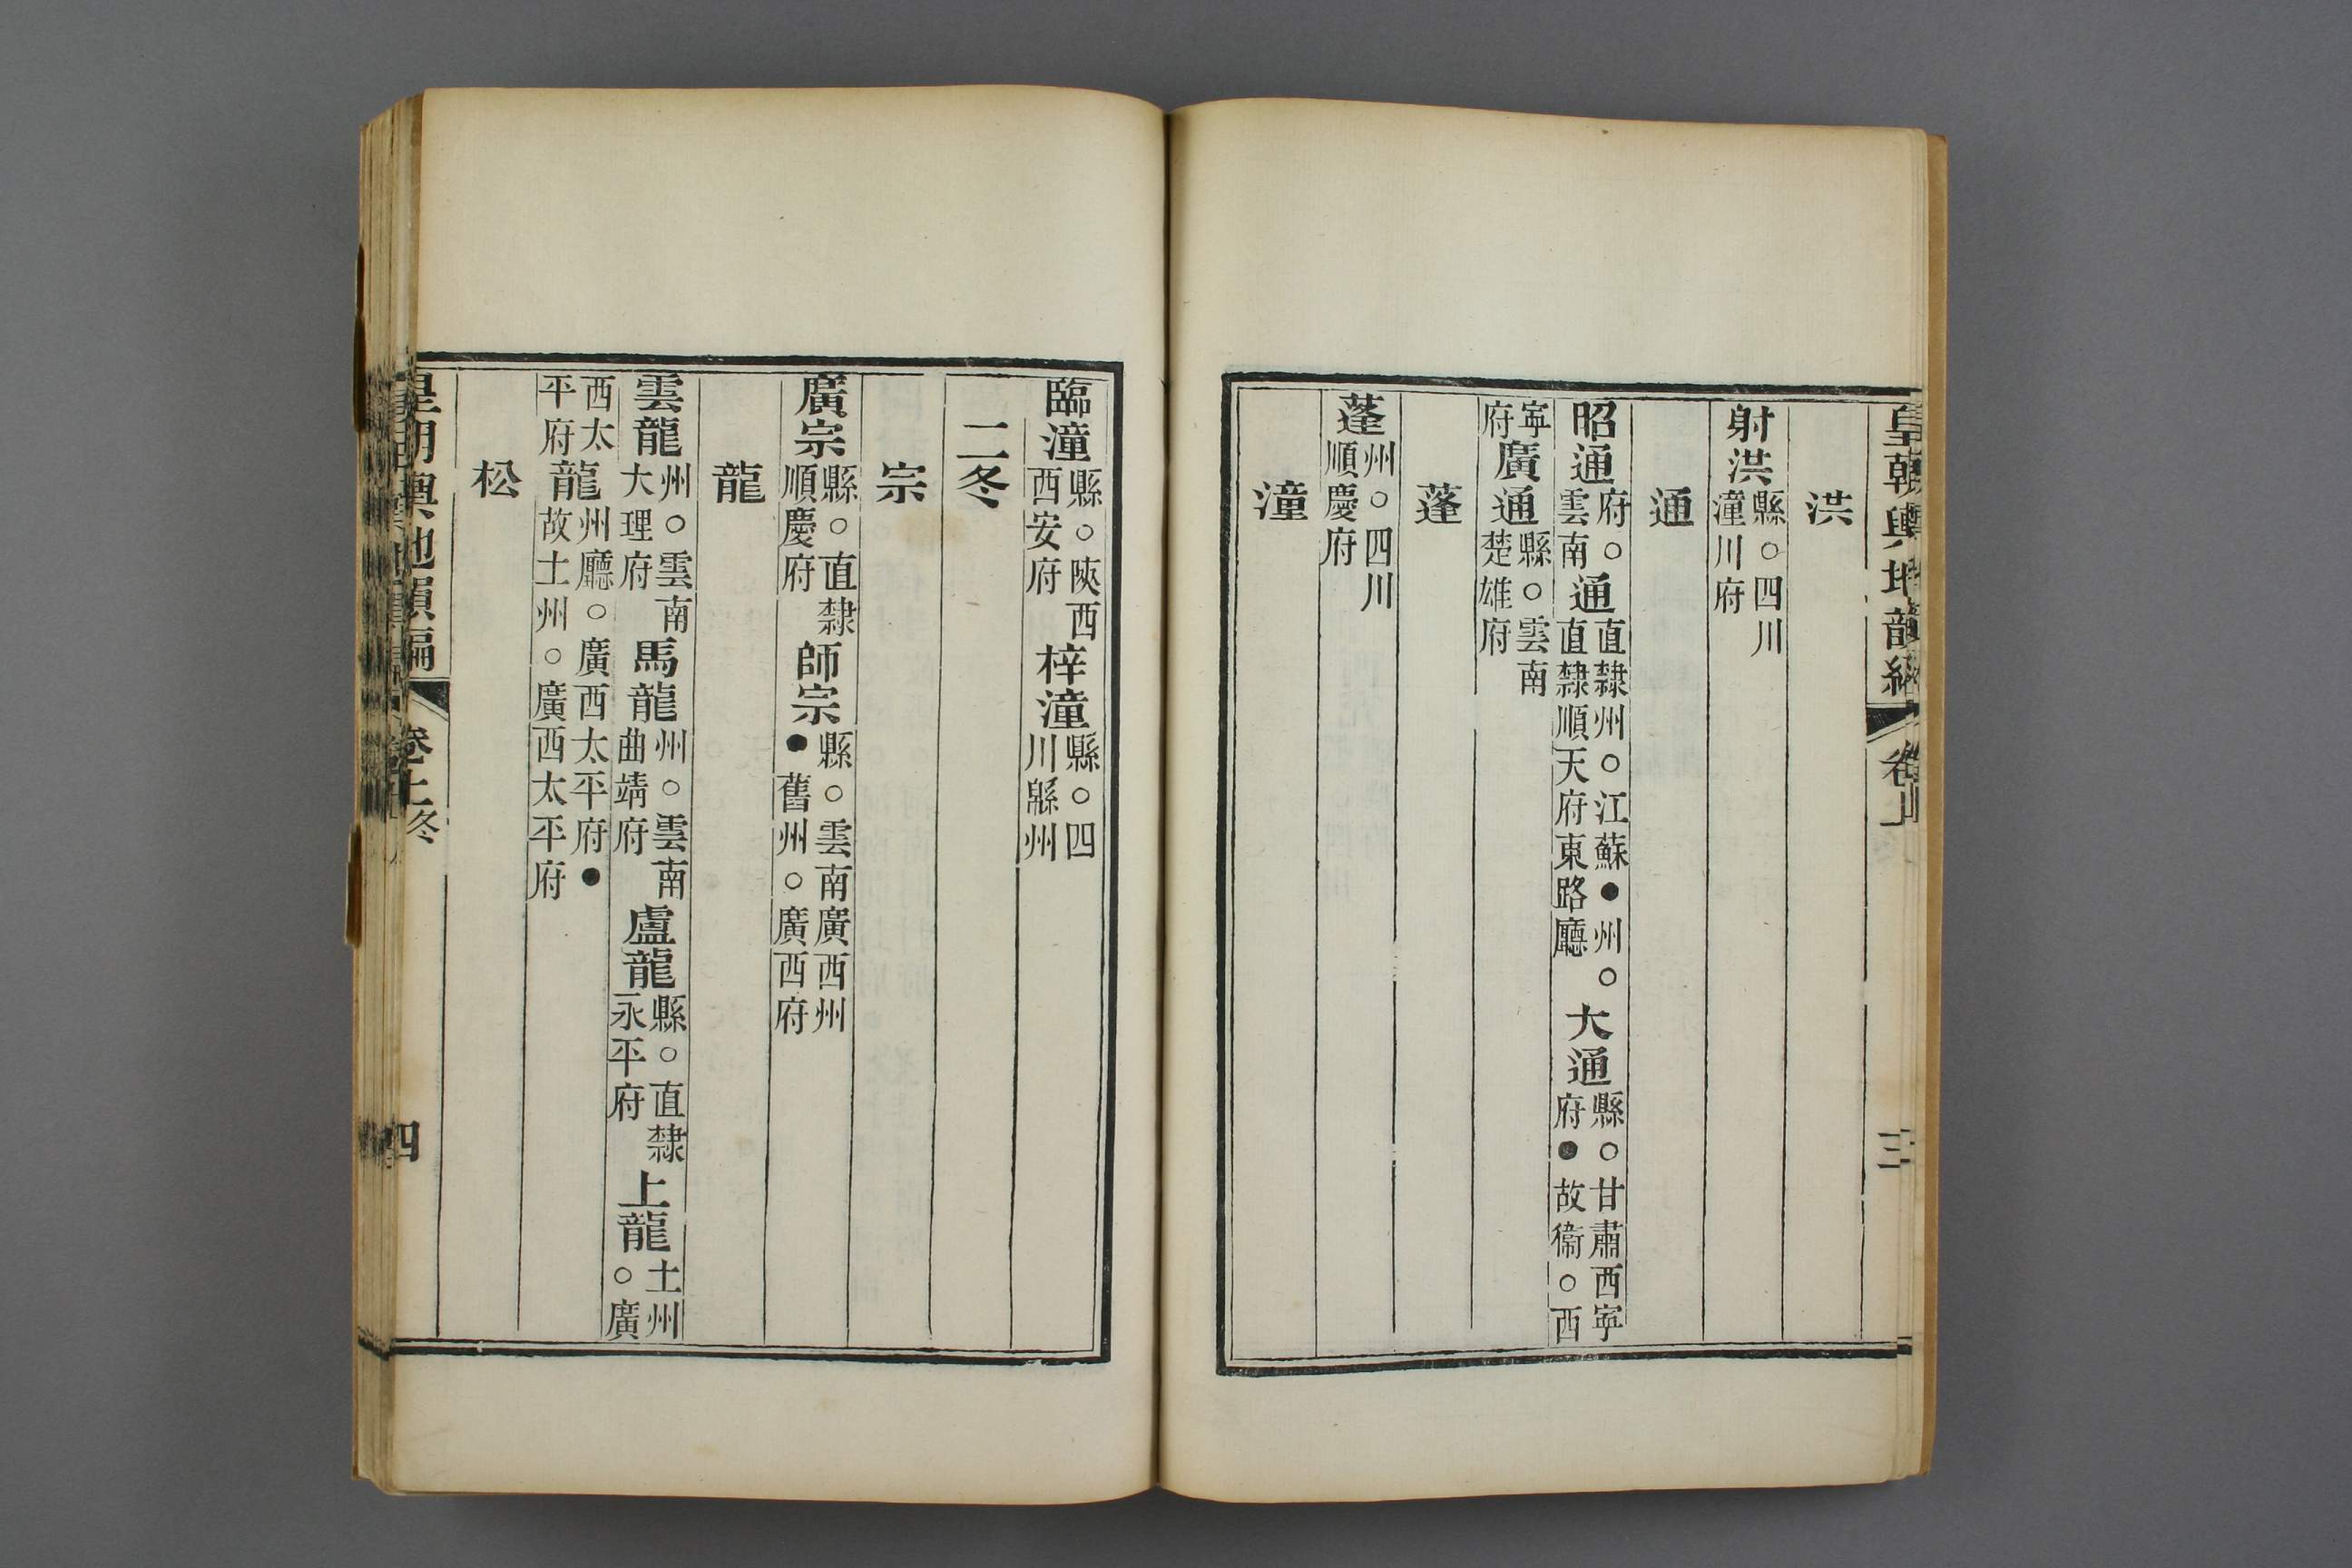 皇朝輿地韻編 卷上 三
洪
射洪縣○四川潼川府
通
昭通府○雲南通直隸州○江蘇●州○直隸順天府東路廳大通縣○甘肅西寧府●故衞○西
寧府廣通縣○雲南楚雄府
蓬
蓬州○四川順慶府
潼
臨潼縣○陝西西安府梓潼縣○四川緜州
二冬
宗
廣宗縣○直隸順慶府師宗縣○雲南廣西州●舊州○廣西府
龍
雲龍州○雲南大理府馬龍州○雲南曲靖府盧龍縣○直隸永平府上龍土州○廣
西太平府龍州廳○廣西太平府●故土州○廣西太平府
松
皇朝輿地韻編 卷上 冬 四